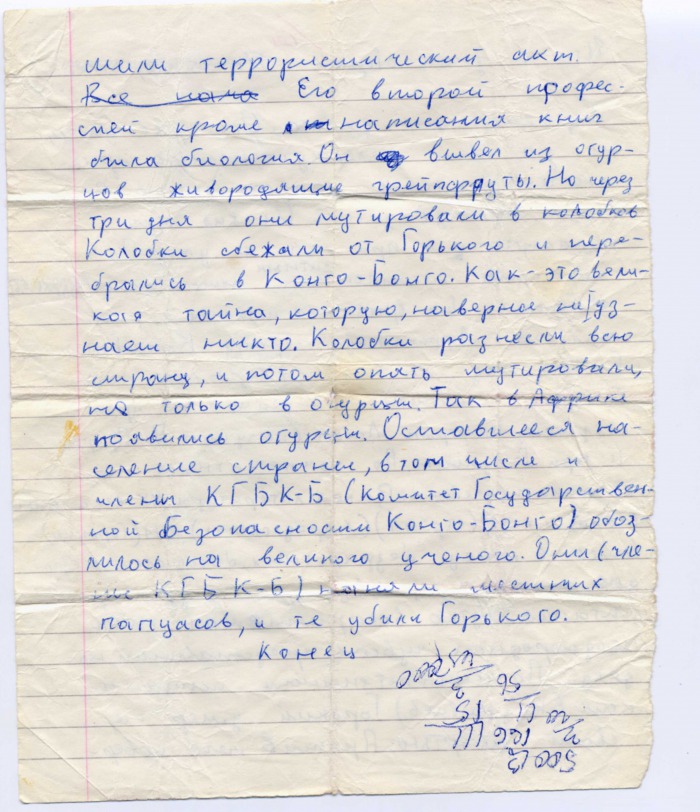 шили террористический акт.
Все нача Его второй профес-
сией кроме написания книг
была биология. Он вывел из огур-
цов живородящие грейпфруты. Но через
три дня они мутировали в колобков
Колобки сбежали от Горького и пере-
брались в Конго-Бонго. Как-это вели-
кая тайна, которую, наверное не уз-
нает никто. Колобки разнесли всю
страну, и потом опять мутировали,
только в огурцы. Так в Африке
появились огурцы. Оставшееся на-
селение страны, в том числе и
члены КГБК-Б (Комитет Государствен-
ной Безопасности Конго-Бонго) обоз-
лилось на великого ученого. Они (чле-
ны КГБК-Б) наняли местных
папуасов, и те убили Горького.
Конец